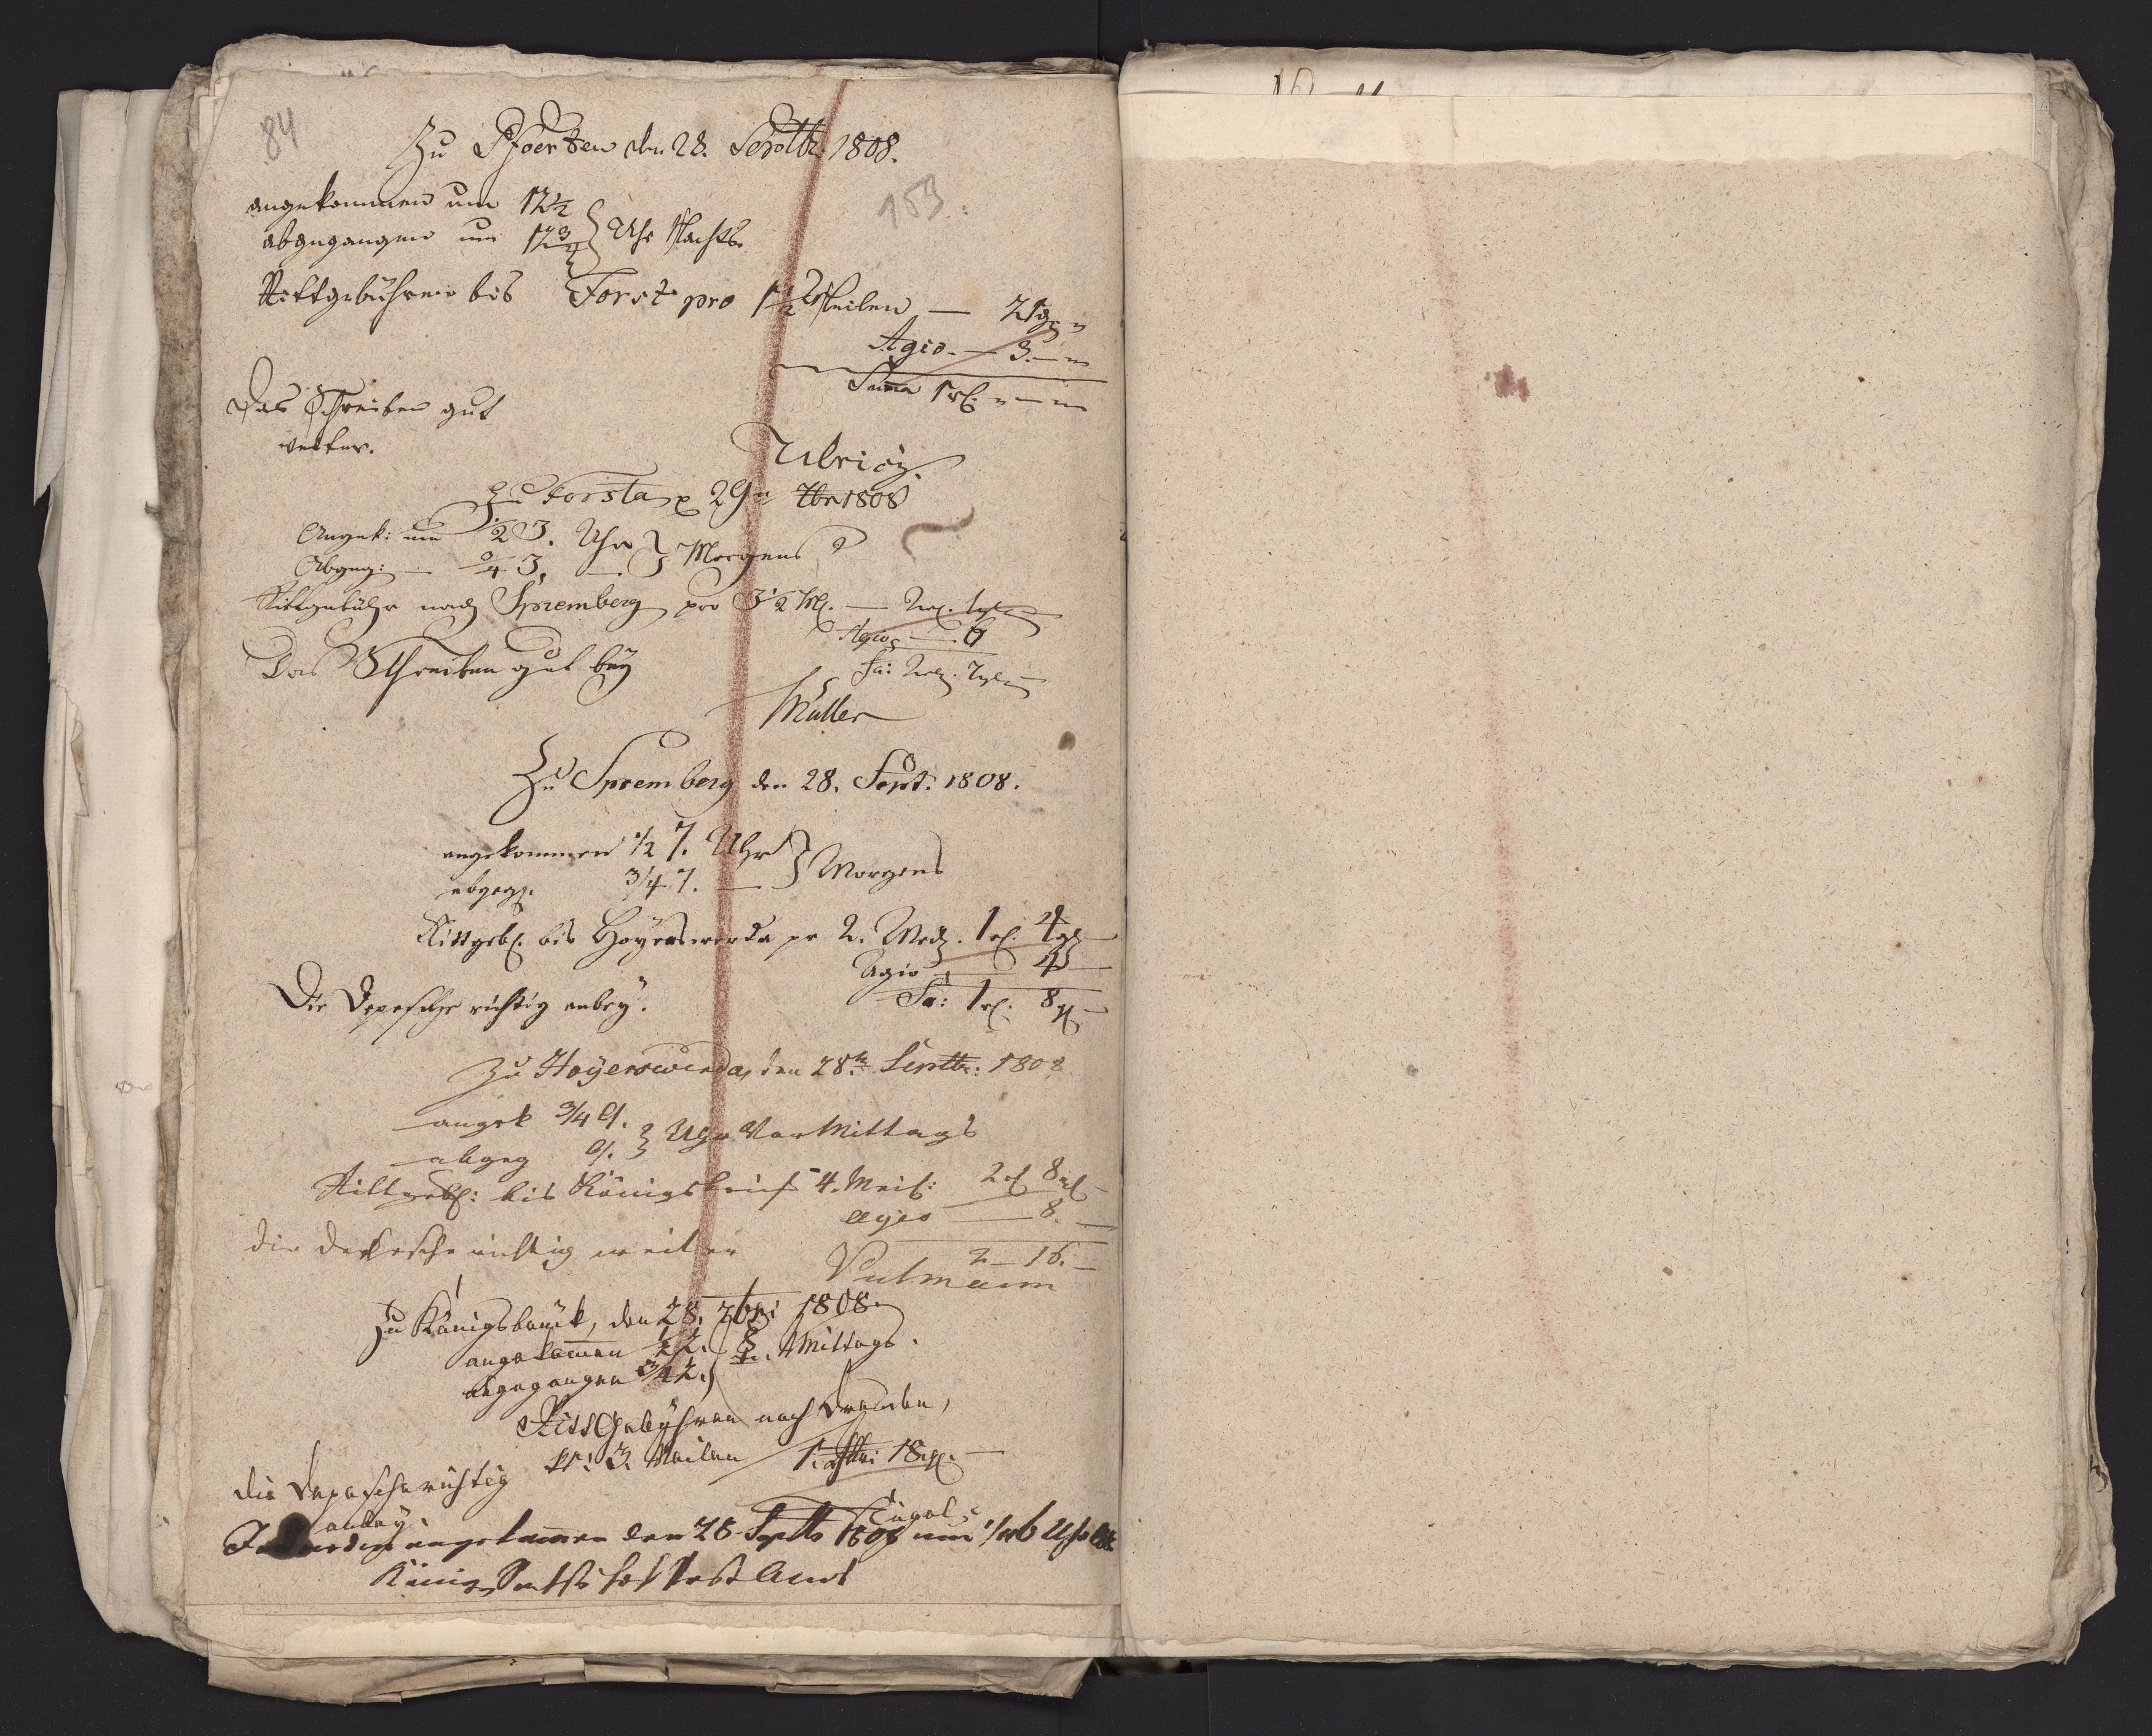 84
Zu Pfoerten den 28. Septbr: 1808.
153
angekommen um 12½
abgegangen um 12¾ } Uhr Nachts.
Rittgebühren bis Forst pro 1½ Meilen — 21 gr. "
Agio. — 3. — "
Suma 1 rl. " — "
Das Schreiben gut
weiter.
Ulrici
Zu Forsta, 29 7br 1808
Angek: um ½ 3. Uhr } Morgens
Abgeg: — ¾ 3. —
Rittgebühr nach Spremberg pro 3½ Ml. — 2 rl. 1 gl.
Agio — 6
Sa: 2 rl. 7 gl.
Das Schreiben gut bey
Müller
Zu Spremberg den 28. Sept: 1808.
angekommen ½ 7. Uhr } Morgens
abgeg. ¾ 7. —
Rittgeb. bis Hoyerswerda pr 2. Ml. 1 rl. 4 gl. —
Agio — 4 —
Sa: 1 rl. 8 gl.
Die Depesche richtig anbey.
Zu Hoyerswerda, den 28t Septbr: 1808
angek ¾ 9.
abgeg 9. } Uhr Vor Mittags
Rittgeb: bis Königsbrück 4. Meil: 2 rl 8 gl —
Agio — 8. —
2 — 16. —
die Depesche richtig weiter
Putmann
Zu Königsbrück, den 28. 7bri 1808.
angekom̄en ½ 2.
abgegangen ¾ 2. } Mittags.
Ritt Gebühren nach Dresden,
pr: 3. Meilen 1. Thlr: 18 gl. —
die Depesche richtig
anbey.
angekom̄en den 28 Septb 1808 um 6 Uhr
Königl. Sächs. Hof Post Amt